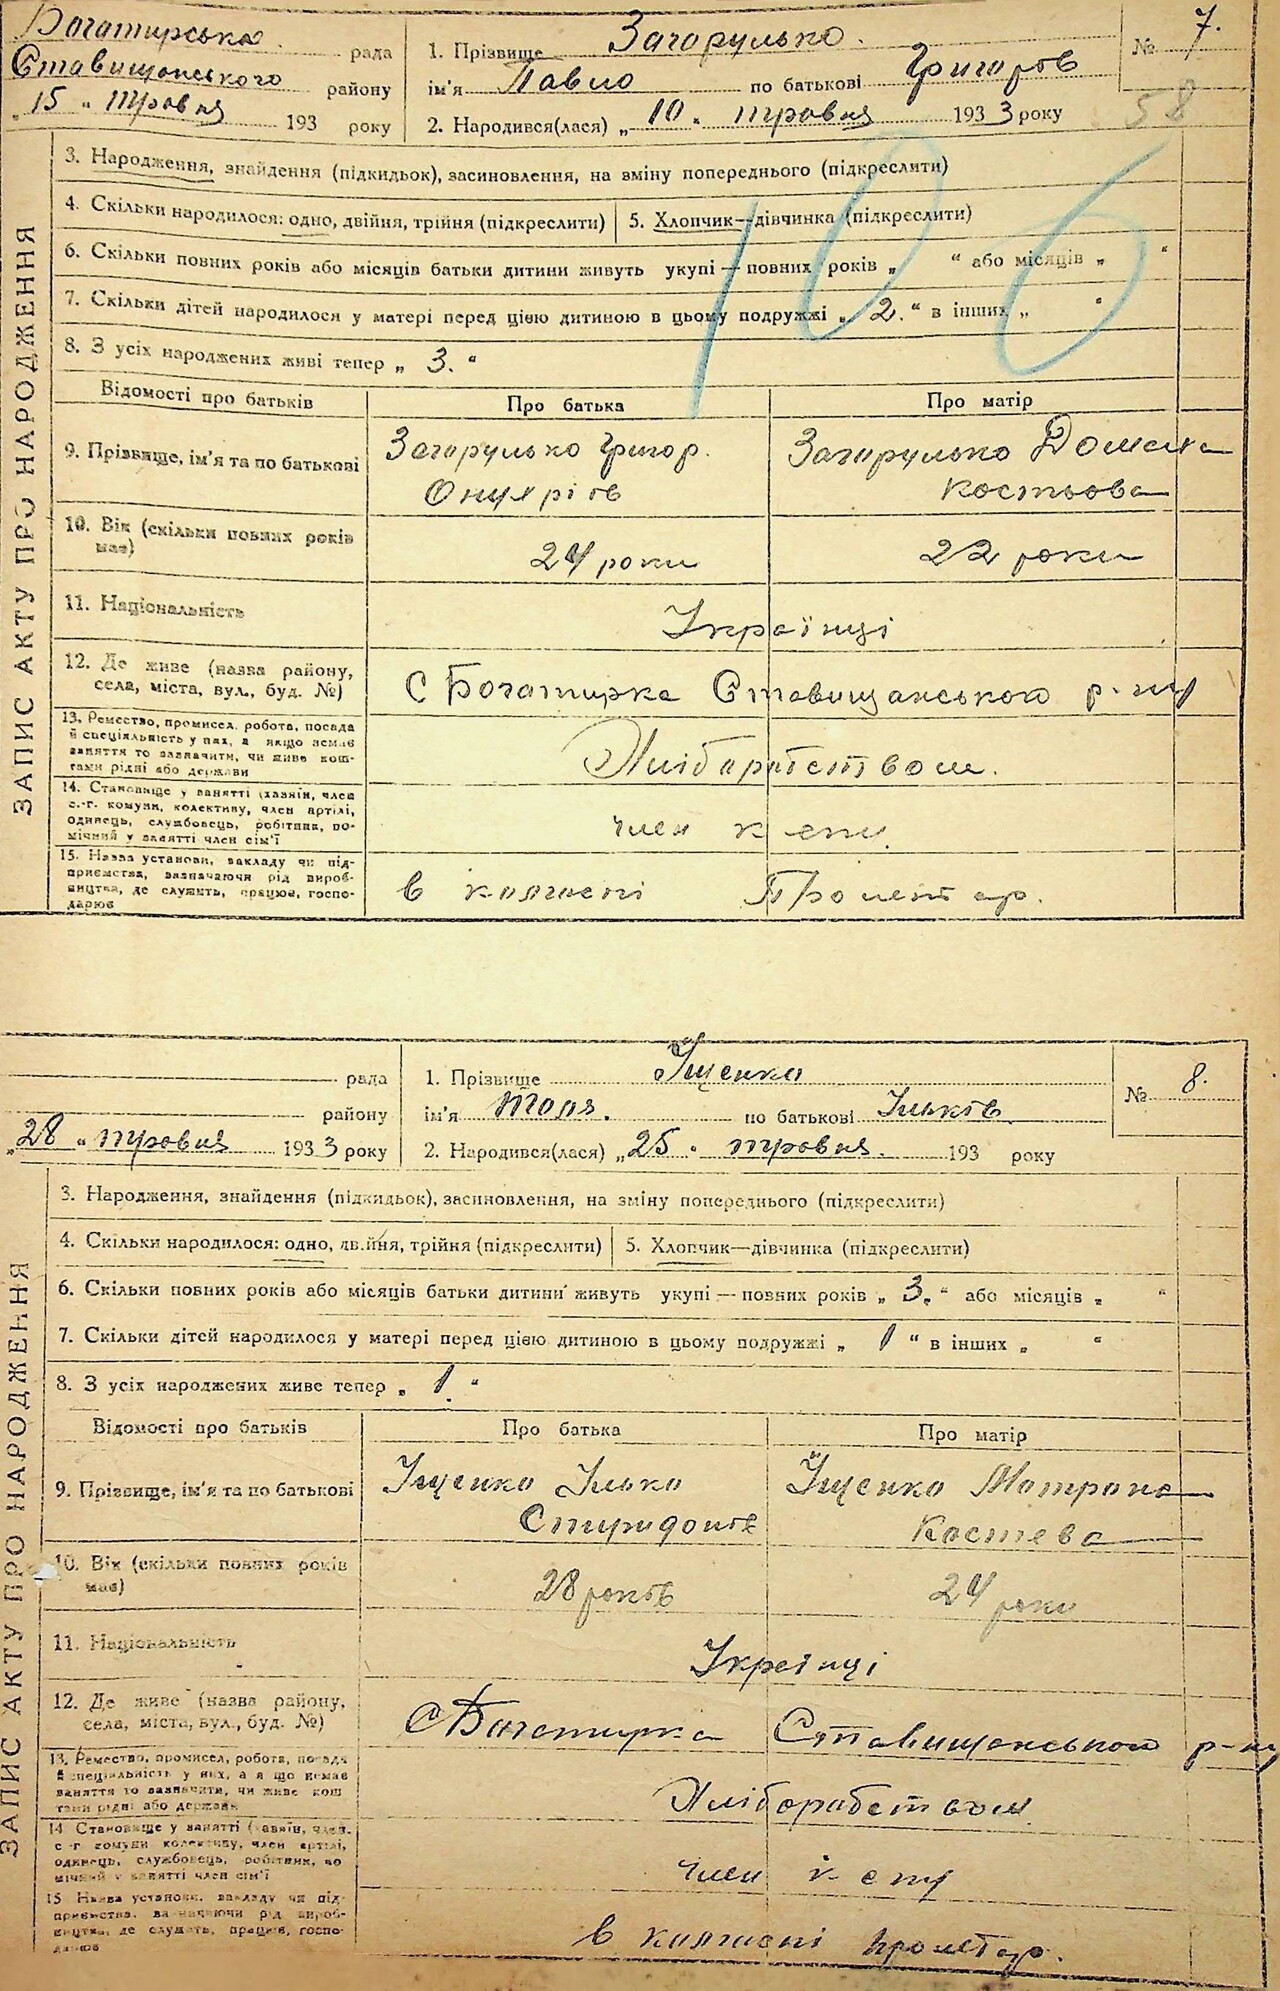 Богатирська рада
Ставищанського району
„ 15 “ травня 193 року
1. Прізвище Загорулько.
ім'я Павло по батькові Григорів
2. Народився(лася) „ 10 “ травня 1933 року
№ 7.
58
106
ЗАПИС АКТУ ПРО НАРОДЖЕННЯ
3. Народження, знайдення (підкидьок), засиновлення, на зміну попереднього (підкреслити)
4. Скільки народилося: одно, двійня, трійня (підкреслити) 5. Хлопчик—дівчинка (підкреслити)
6. Скільки повних років або місяців батьки дитини живуть укупі — повних років „ “ або місяців „ “
7. Скільки дітей народилося у матері перед цією дитиною в цьому подружжі „ 2. “ в інших „ “
8. З усіх народжених живі тепер „ 3. “
Відомості про батьків Про батька Про матір
9. Прізвище, ім'я та по батькові
Загорулько Григор.
Онупріів
Загорулько Домена
Костьова
10. Вік (скільки повних років
має)
24 роки 22 роки
11. Національність Українці
12. Де живе (назва району,
села, міста, вул., буд. №)
С Богатирка Ставищанського р-ну
13. Ремество, промисел, робота, посада
й спеціяльність у них, а якщо немає
заняття то зазначити, чи живе кош-
тами рідні або держави
Хліборобством.
14. Становище у занятті (хазяїн, член
с.-г. комуни, колективу, член артілі,
одинець, службовець, робітник, по-
мічний у занятті член сім'ї
член к
15. Назва установи, закладу чи під-
приємства, зазначаючи рід вироб-
ництва, де служить, працює, госпо-
дарює
в колгоспі Пролетар.
рада
району
„ 28 “ травня 1933 року
1. Прізвище Іщенко
ім'я Толя. по батькові Ільків
2. Народився(лася) „ 25 “ травня. 193 року
№ 8.
ЗАПИС АКТУ ПРО НАРОДЖЕННЯ
3. Народження, знайдення (підкидьок), засиновлення, на зміну попереднього (підкреслити)
4. Скільки народилося: одно, двійня, трійня (підкреслити) 5. Хлопчик—дівчинка (підкреслити)
6. Скільки повних років або місяців батьки дитини живуть укупі — повних років „ 3. “ або місяців „ “
7. Скільки дітей народилося у матері перед цією дитиною в цьому подружжі „ 1 “ в інших „ “
8. З усіх народжених живе тепер „ 1. “
Відомості про батьків Про батька Про матір
9. Прізвище, ім'я та по батькові
Іщенко Ілько
Спиридонів
Іщенко Мотрона
Костева
10. Вік (скільки повних років
має)
28 років 24 роки
11. Національність Українці
12. Де живе (назва району,
села, міста, вул., буд. №)
С Богатирка Ставищанського р-ну
13. Ремество, промисел, робота, посада
й спеціяльність у них, а якщо немає
заняття то зазначити, чи живе кош
тами рідні або держави
Хліборобством
14 Становище у занятті (хазяїн, член.
с-г комуни колективу, член артілі,
одинець, службовець, робітник, по
мічний у занятті член сім'ї
член к
15 Назва установи, закладу чи під-
приємства, зазначаючи рід вироб-
ництва, де служить, працює, госпо-
дарює
в колгоспі пролетар.